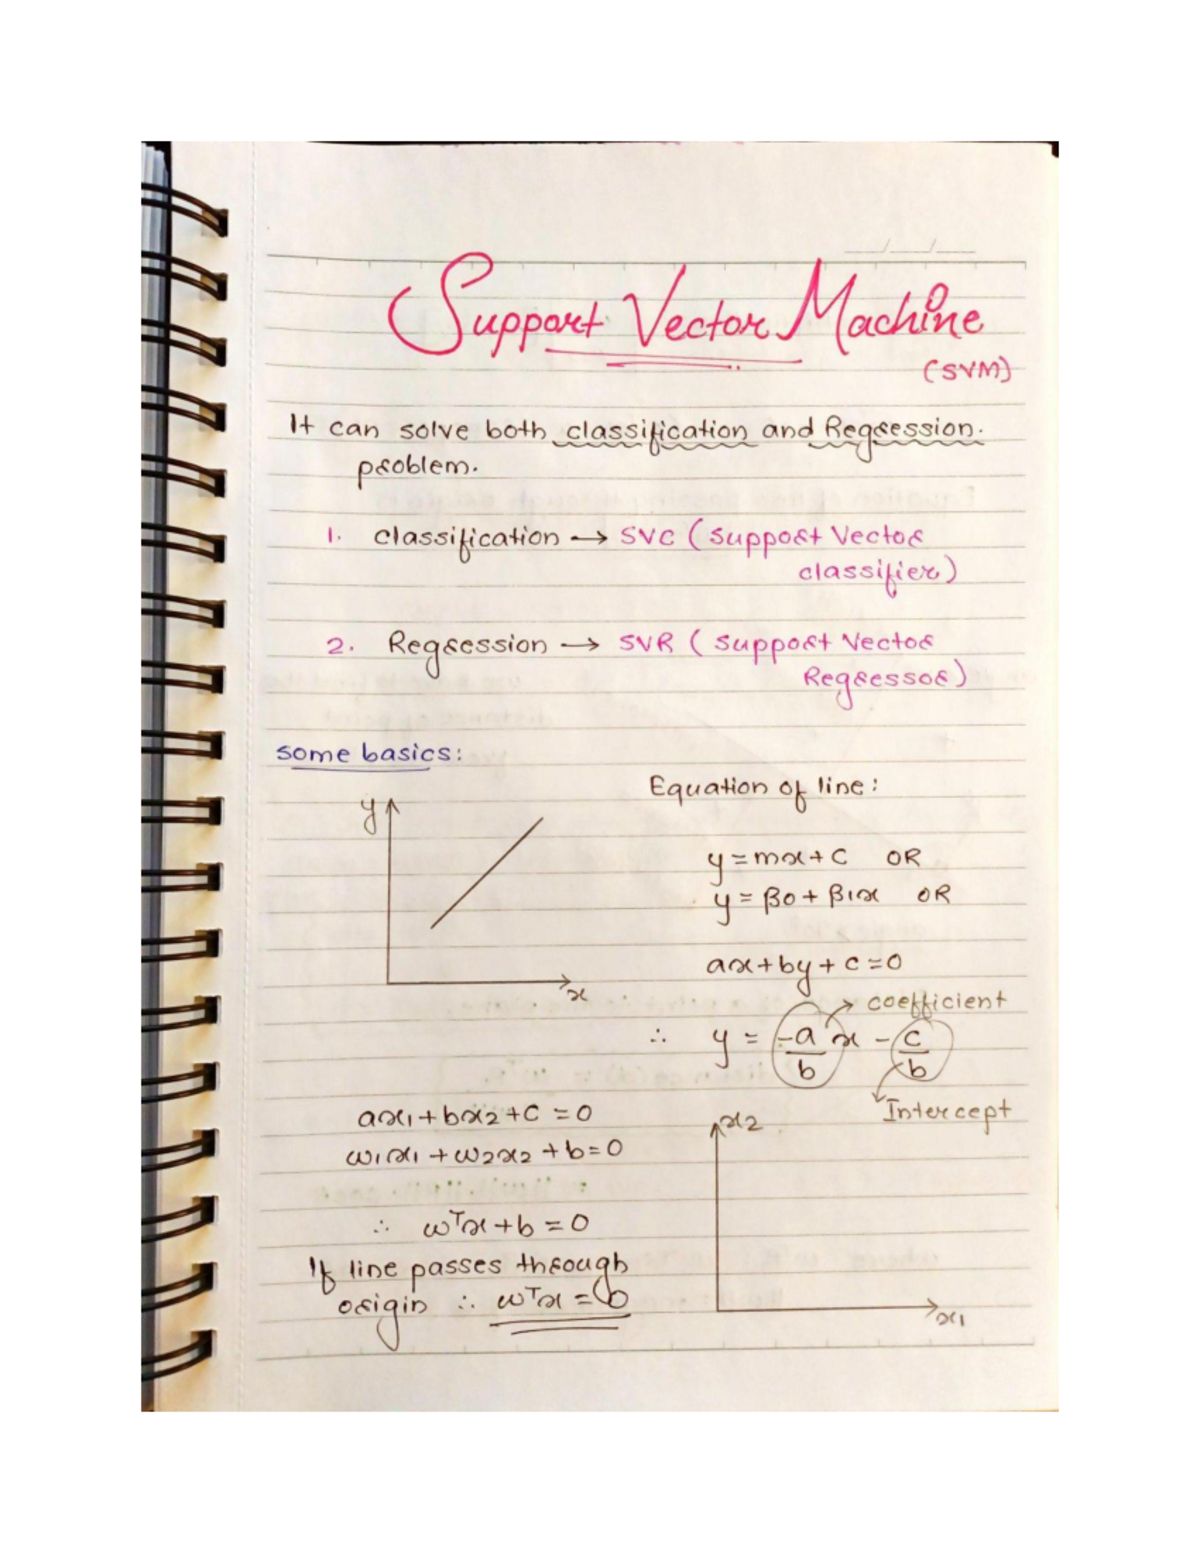 Support Vector Machine
(SVM)
It can solve both classification and Regression.
problem.
1. classification → SVC (Support Vector
classifier)
2. Regression → SVR (Support Vector
Regressor)
some basics:
y
x
Equation of line:
y = mx + C OR
y = β0 + β1x OR
ax + by + c = 0
coefficient
∴ y = -a/b x - c/b
Intercept
ax1 + bx2 + C = 0
w1x1 + w2x2 + b = 0
∴ wᵀx + b = 0
If line passes through
origin ∴ wᵀx = 0
x2
x1